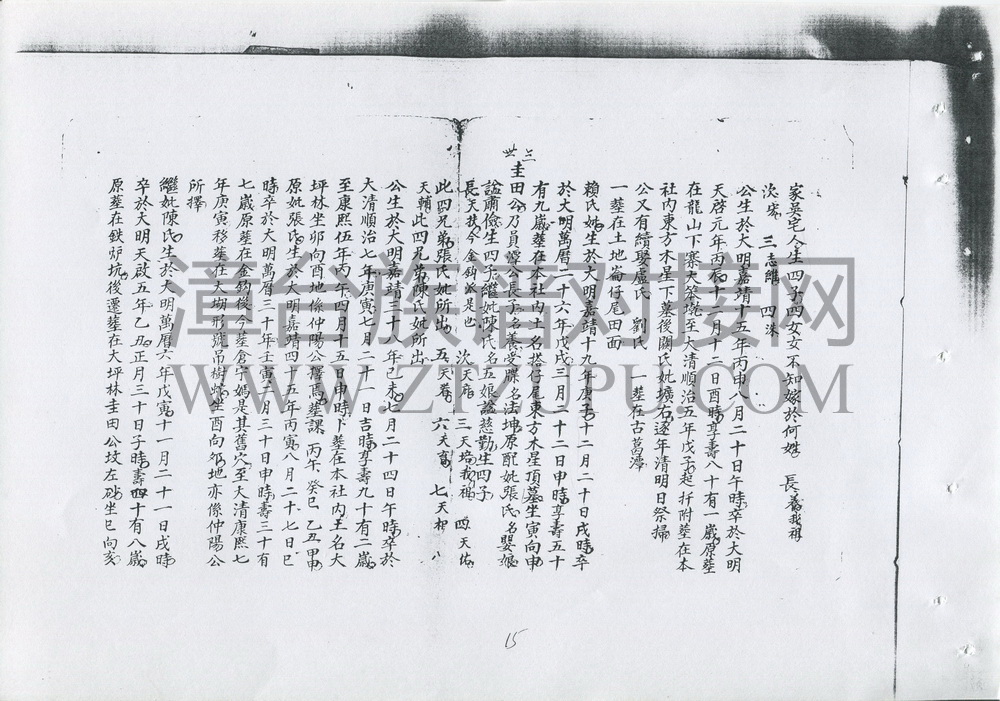 家吳宅人生四子四女女不知嫁於何姓 長養我祖
次 三志雖 四洙
公生於大明嘉靖十五年丙申八月二十日午時卒於大明
天啓元年丙 十二月十二日酉時享壽八十有一歲原塟
在龍山下寨天笨 至大清順治五年戊子起扦附塟在本
社內東方木星下墓後關氏妣壙右逐年清明日祭掃
公又有續娶盧氏 劉氏 一塟在古萬
一塟在土地崙仔尾田面
賴氏妣生於大明嘉靖十九年庚子十二月二十日戌時卒
於大明萬曆二十六年戊戌三月二十二日申時享壽五十
有九歲塟在本社內土名 仔尾東方木星頂墓坐寅向申
三世
圭田公乃員 公長子名養受牒名法坤原配妣張氏名嬰娘
謚肅儉生四子繼妣陳氏名五娘謚慈勤生四子
長天 今金鈎派是也 次天府 三天培我祖 四天佑
此四兄弟張氏妣所出 五天眷 六天 七天相 八
天輔此四兄弟陳氏妣所出
公生於大明嘉靖三十八年己未七月二十四日午時卒於
大清順治七年庚寅七月二十一日吉時享壽九十有二歲
至康熙伍年丙午四月十五日申時卜塟在本社內土名大
坪林坐卯向酉地係仲陽公 塟課 丙午 癸巳 乙丑 甲申
原妣張氏生於大明嘉靖四十五年丙寅八月二十七日巳
時卒於大明萬曆三十年壬寅 月三十日申時壽三十有
七歲原塟在金鈎後今塟倉宁媽是其舊穴至大清康熙七
年庚寅移塟在大 形號吊樹 坐酉向卯地亦係仲陽公
所擇
繼妣陳氏生於大明萬曆六年戊寅十一月二十一日戌時
卒於大明天啟五年乙丑正月三十日子時壽四十有八歲
原塟在鉄炉坑後遷塟在大坪林圭田公坟左 坐巳向亥
15
漳台族譜对接网
WWW.ZTZUPU.COM